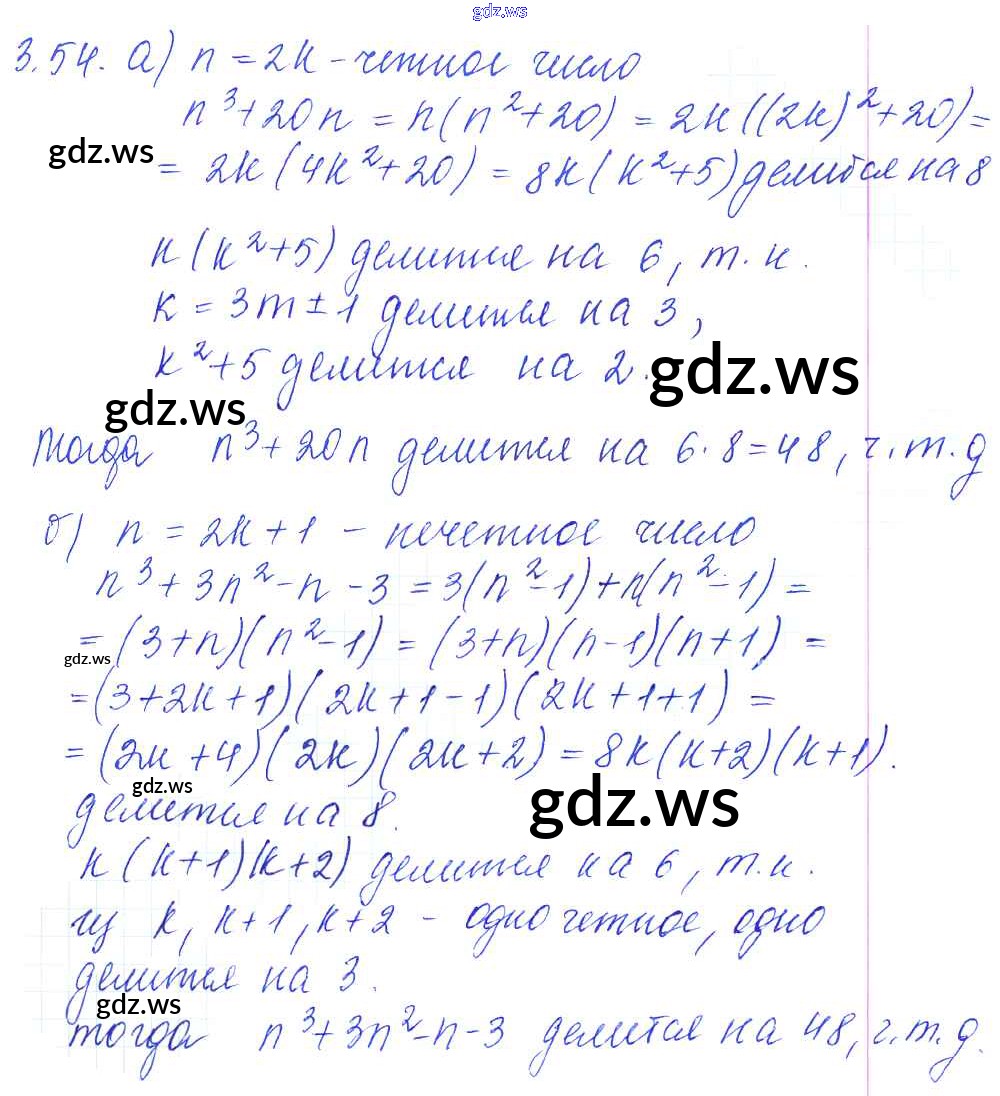 gdz.ws
3.54. а) n = 2k - четное число
n³ + 20n = n(n² + 20) = 2k((2k)² + 20) =
gdz.ws
= 2k(4k² + 20) = 8k(k² + 5) делится на 8
k(k² + 5) делится на 6, т. к.
k = 3m ± 1 делится на 3,
k² + 5 делится на 2.
gdz.ws
gdz.ws
тогда n³ + 20n делится на 6·8 = 48, ч. т. д
б) n = 2k + 1 - нечетное число
n³ + 3n² - n - 3 = 3(n² - 1) + n(n² - 1) =
= (3 + n)(n² - 1) = (3 + n)(n - 1)(n + 1) =
gdz.ws
= (3 + 2k + 1)(2k + 1 - 1)(2k + 1 + 1) =
= (2k + 4)(2k)(2k + 2) = 8k(k + 2)(k + 1).
gdz.ws
gdz.ws
делится на 8.
k(k + 1)(k + 2) делится на 6, т. к.
из k, k + 1, k + 2 - одно четное, одно
делится на 3.
gdz.ws
тогда n³ + 3n² - n - 3 делится на 48, ч. т. д.